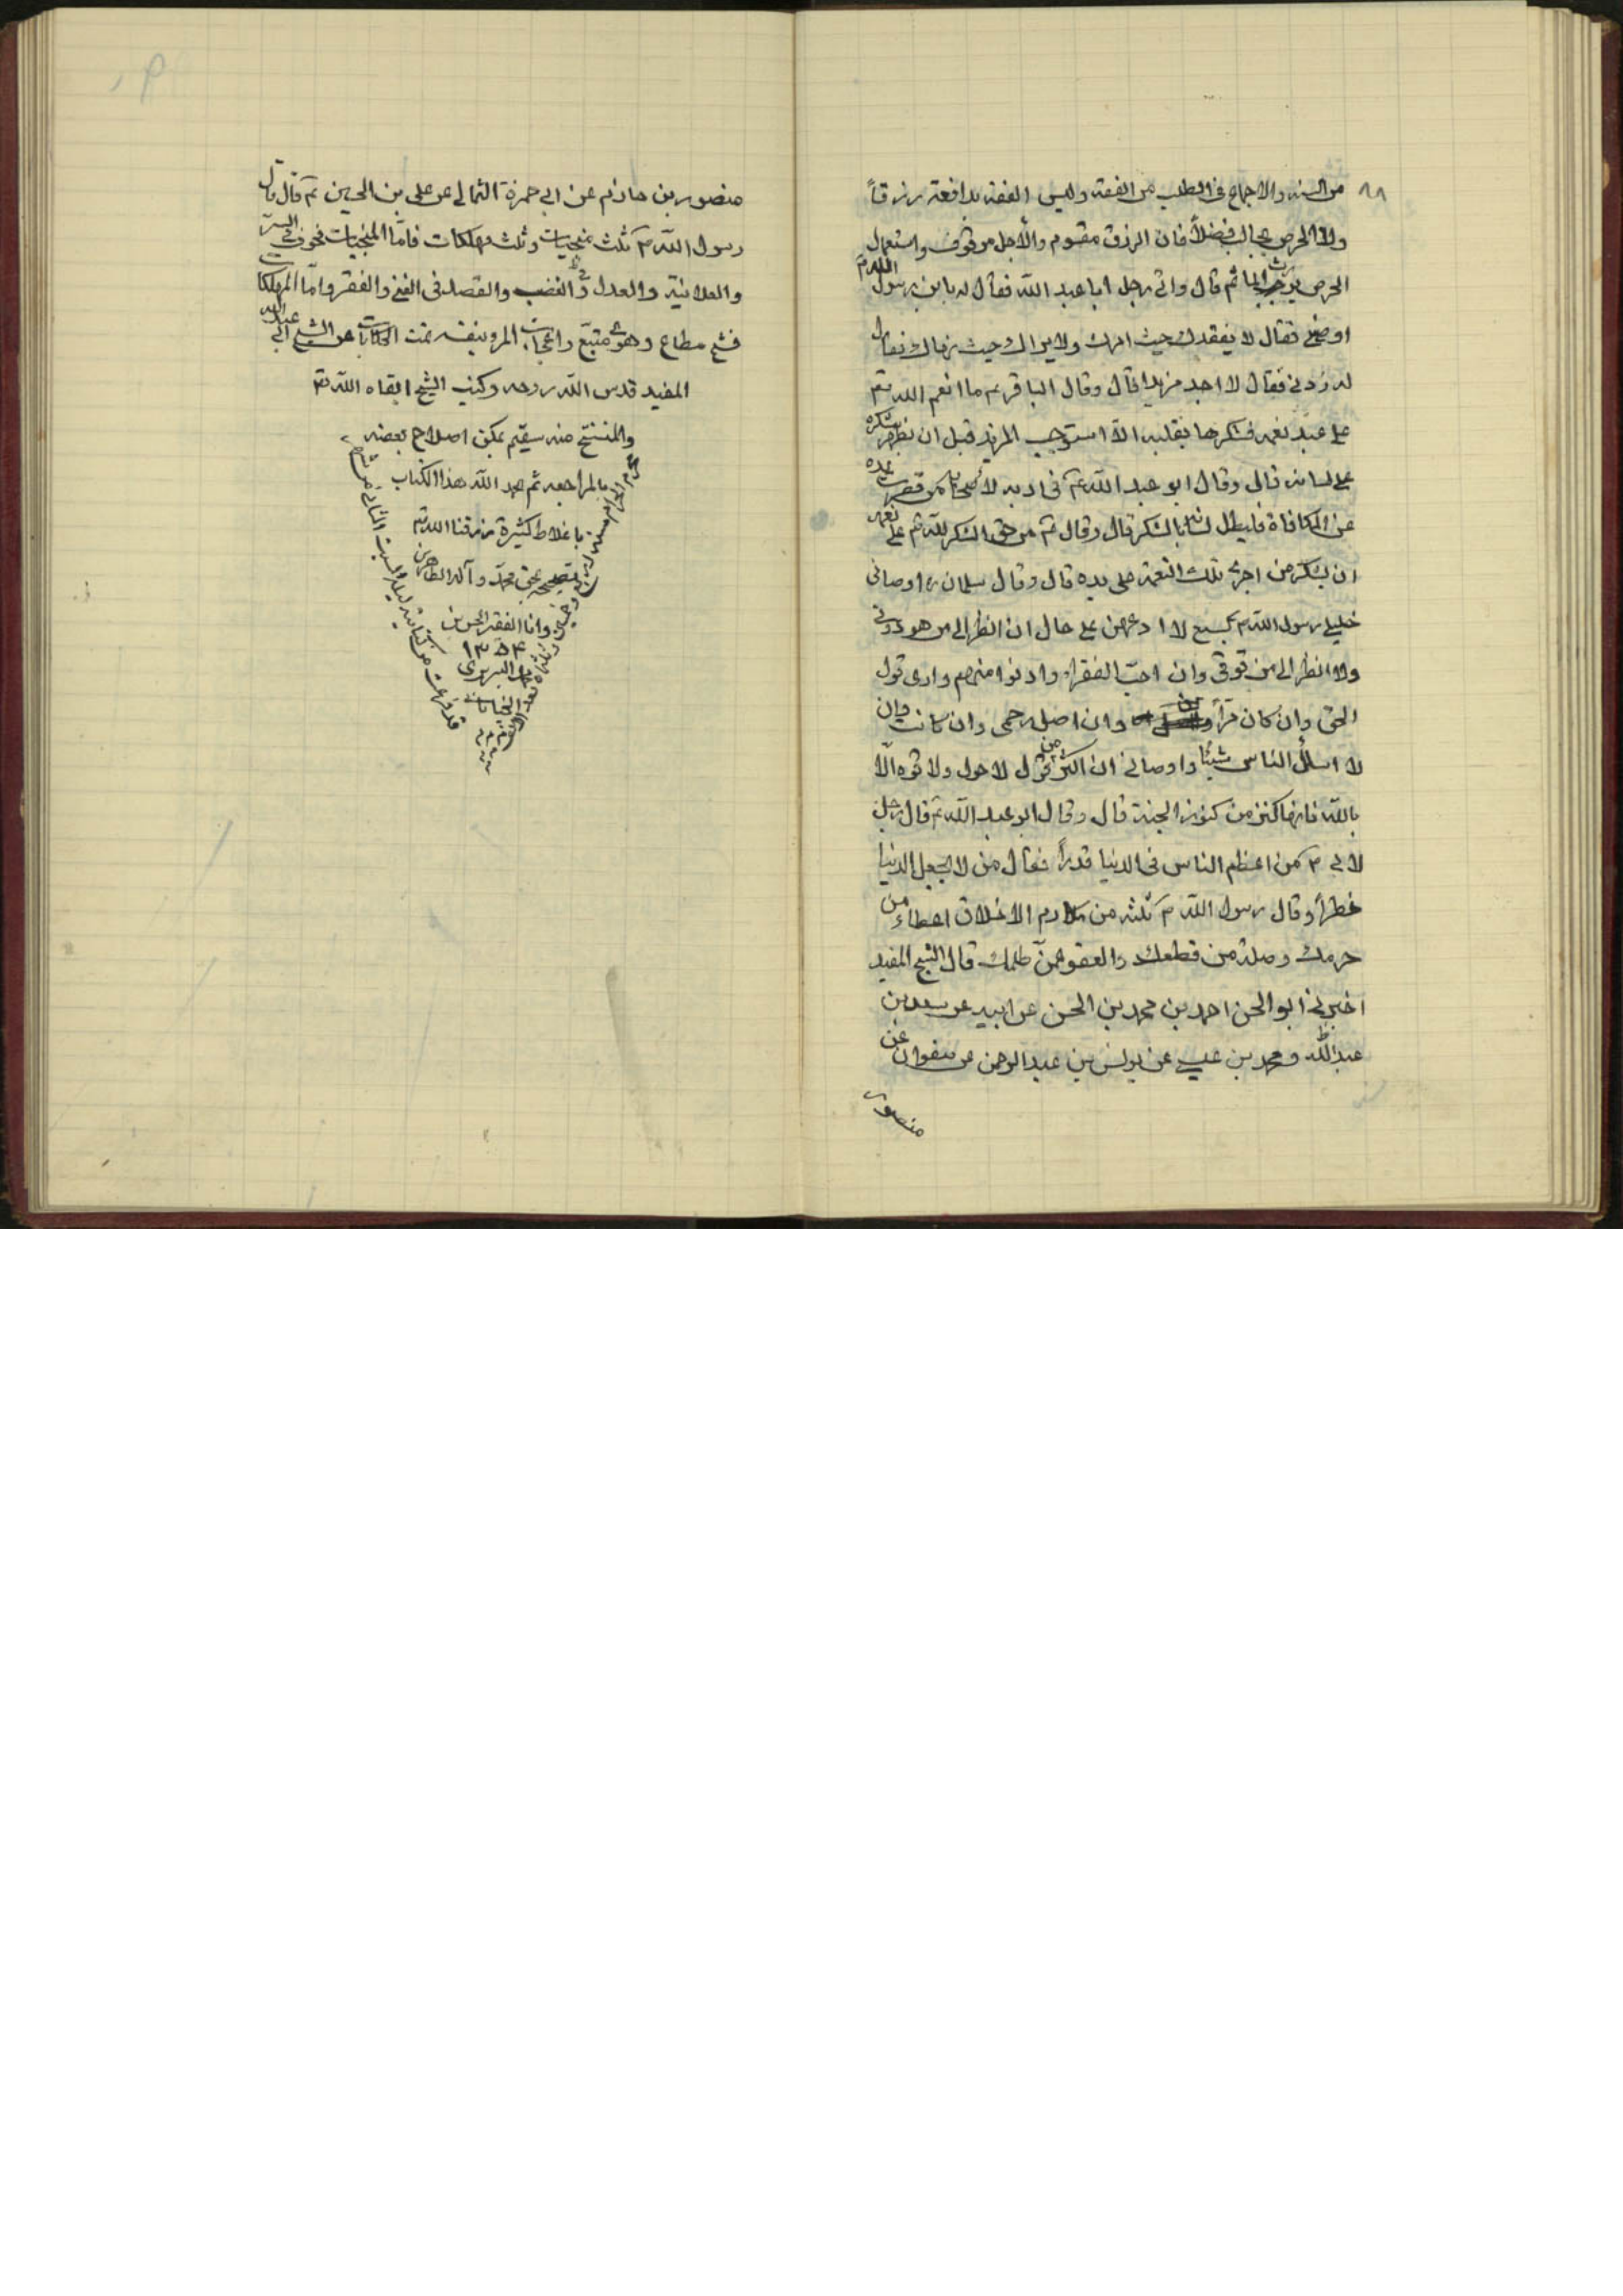 ٩٨
من السنه والاجماع فى الطلب من العفة وليس العفة بدافعة رزقاً
ولا الحرص بجالب فضلاً فان الرزق مقسوم والأجل موقوف واستعمال
الحرص يورث المآثم قال واتى رجل ابا عبد الله فقال له يا بن رسول الله م
اوصنى فقال لا يفقدك حيث امرك ولا يراك حيث نهاك فقال
له زدنى فقال لا اجد مزيدا قال وقال الباقر ع ما انعم الله تع
على عبد نعمه فشكرها بقلبه الا استوجب المزيد قبل ان يظهر شكره
على لسانه قال وقال ابو عبد الله ع من قصرت يده
عن المكافاة فليطل لسانه بالشكر قال وقال ع من حق الشكر لله تع على نعمه
ان يشكر من اجرى تلك النعمة على يده قال وقال سلمان ره اوصانى
خليلى رسول الله م بسبع لا ادعهن على حال ان انظر الى من هو دونى
ولا انظر الى من فوقى وان احب الفقراء وادنوا منهم وان قول
الحق وان كان مرّاً وان اصل رحمى وان كانت وان
لا اسأل الناس شيئا واوصانى ان اكثر من قول لا حول ولا قوة الّا
بالله فانها كنز من كنوز الجنة قال وقال ابو عبد الله ع قال رجل
لابى ع من اعظم الناس فى الدنيا قدراً فقال من لا يجعل الدنيا
خطراً وقال رسول الله م ثلثه من مكارم الاخلاق اعطاء من
حرمك وصلة من قطعك والعفو عمن ظلمك قال الشيخ المفيد
اخبرنى ابو الحسن احمد بن محمد بن الحسن عن ابيه عن سعد بن
عبد الله ومحمد بن عيسى عن يونس بن عبد الرحمن عن صفوان عن
منصور
منصور بن حازم عن ابى حمزة الثمالى عن على بن الحسين ع قال قال
رسول الله م ثلث منجيات وثلث مهلكات فامّا المنجيات فخوف فى السر
والعلانية والعدل فى الغضب والقصد فى الغنى والفقر وامّا المهلكات
فشح مطاع وهوى متبع واعجاب المرء بنفسه تمت الحكايات عن الشيخ ابى عبد الله
المفيد قدس الله روحه وكتب الشيخ ابقاه الله تع
والمنتسخ منه سقيم يمكن اصلاح بعضه
بالمراجعه تم بحمد الله هذا الكتاب
باغلاط كثيرة رزقنا الله تع
تصحيحه بحق محمد وآله الطاهرين
وانا الفقير الحسن بن
١٣٥٤
قد فرغت من كتابته ليلة السبت الثانى من شهر